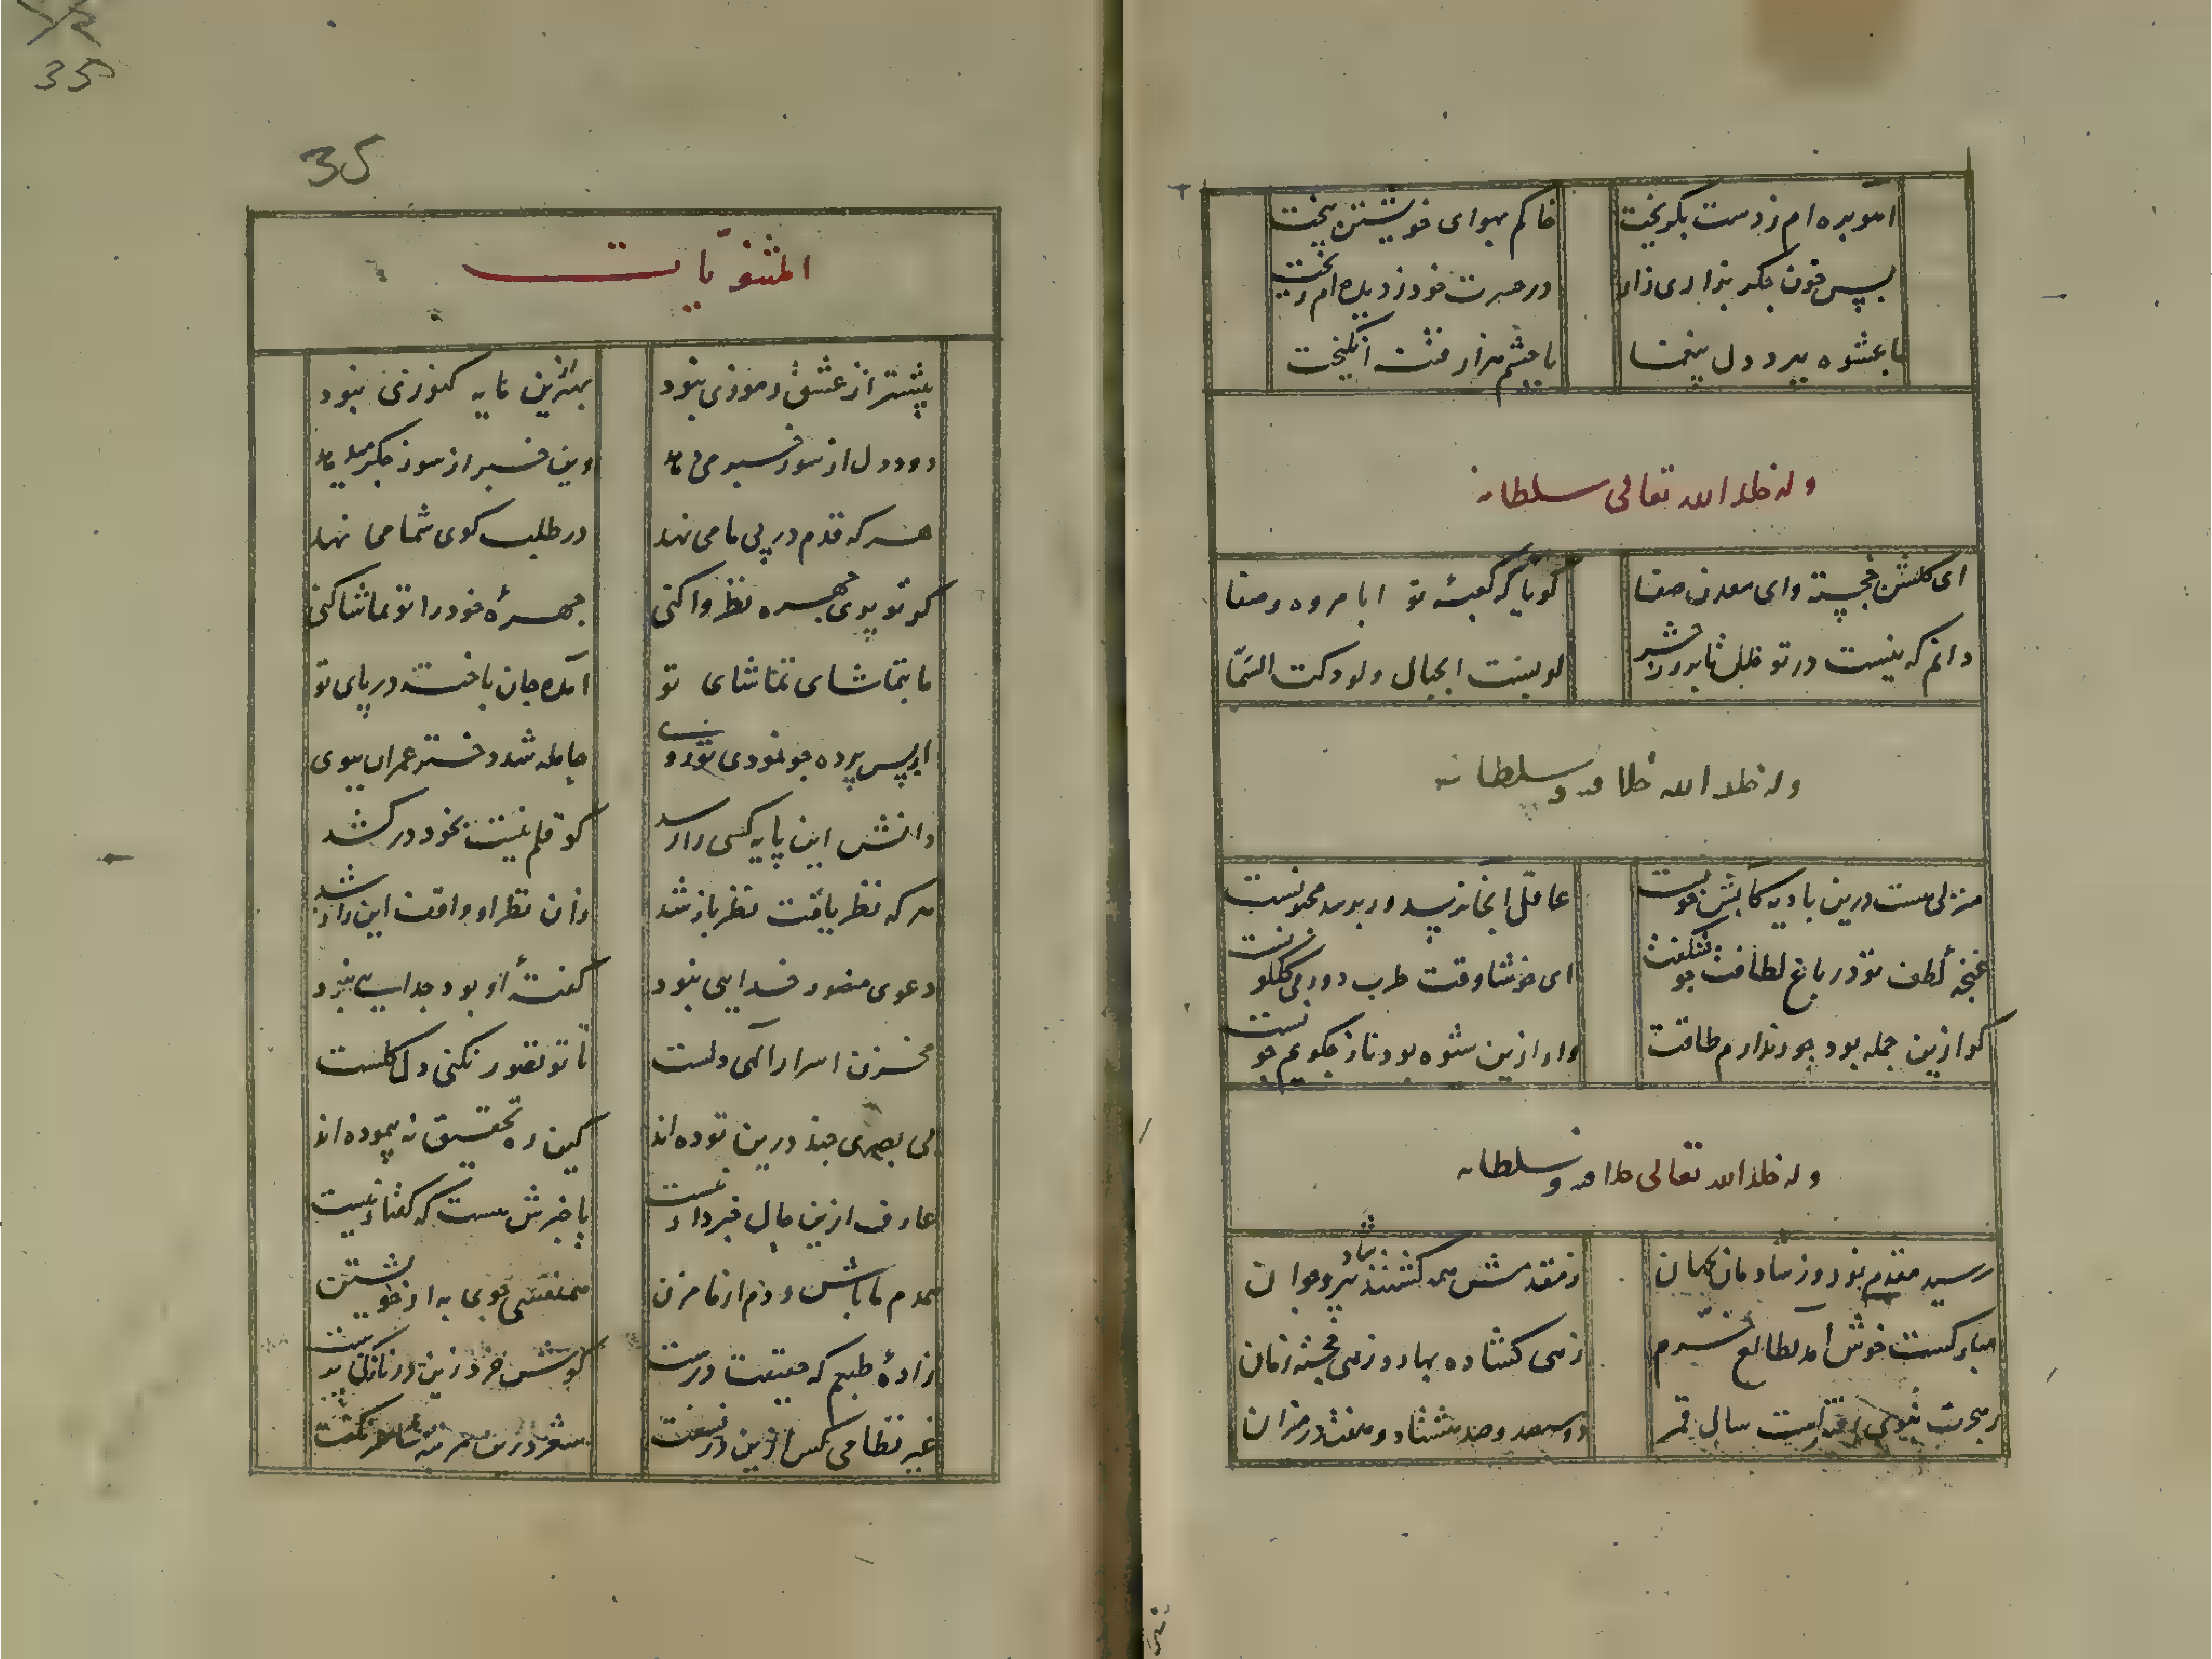 آهو بره ام ز دست بگریخت
خاکم بهوای خویشتن بیخت
بس خون جگر بزاری زار
در حسرت خود ز دیده ام ریخت
با عشوه ببرد دل بیغما
با چشم هزار فتنه انگیخت
وله خلد الله تعالی سلطانه
ای گلشن خجسته وای معدن صفا
گویا که کعبه تو ابا مروه و صفا
دانم که نیست در تو خلل تا بروز حشر
لو لبنت الجبال ولو دکت السما
وله خلد الله سلطانه
منزلی هست درین بادیه
عاقل آنجا نرسد ور برسد مجنونست
غنچه لطف تو در باغ لطافت چو شکفت
ای خوشا وقت طرب دور می گلگونست
گو ازین جمله بود جور ندارم طاقت
ور ازین شیوه بود ناز چگویم چونست
وله خلد الله تعالی سلطانه
رسید مقدم نوروز شادمان جهان
ز مقدمش همه گشتند شاد پیر و جوان
مبارکست خوش آمد بطالع خرم
زهی گشاده بهار و زهی خجسته زمان
ز هجرت نبوی سال قمر
35
35
المثنویات
پیشتر از عشق رموزی نبود
بهتر ازین مایه کنوزی نبود
دود دل از سوز خبر می دهد
وین خبر از سوز جگر میدهد
هر که قدم در پی ما می نهد
در طلب کوی شما می نهد
گو تو بروی چهره نظر واکنی
چهرهٔ خود را تو تماشا کنی
ما بتماشای تماشای تو
آمده جان باخته در پای تو
از پس پرده چو نمودی تو روی
حامله شد دختر عمران بوی
دانش این پایه کسی را رسد
کو قلم نیست بخود درکشد
هر که نظر یافت نظر باز شد
وان نظر او واقف این راز شد
دعوی منصور خدایی نبود
گفتهٔ او بود جدایی نبود
مخزن اسرار الهی دلست
تا تو تصور نکنی دل گلست
بی بصری چند درین توده اند
کین ره تحقیق نه پیموده اند
عارف ازین حال خبردار نیست
با خبرش هست که گفتار نیست
همدم ما باش و دم از ما مزن
همنفسی جوی به از خویشتن
زادهٔ طبعم که حقیقت درست
گوش خرد زین در
غیر نظامی کس ازین در نسفت
شعر درین مرتبه شاعر نگفت